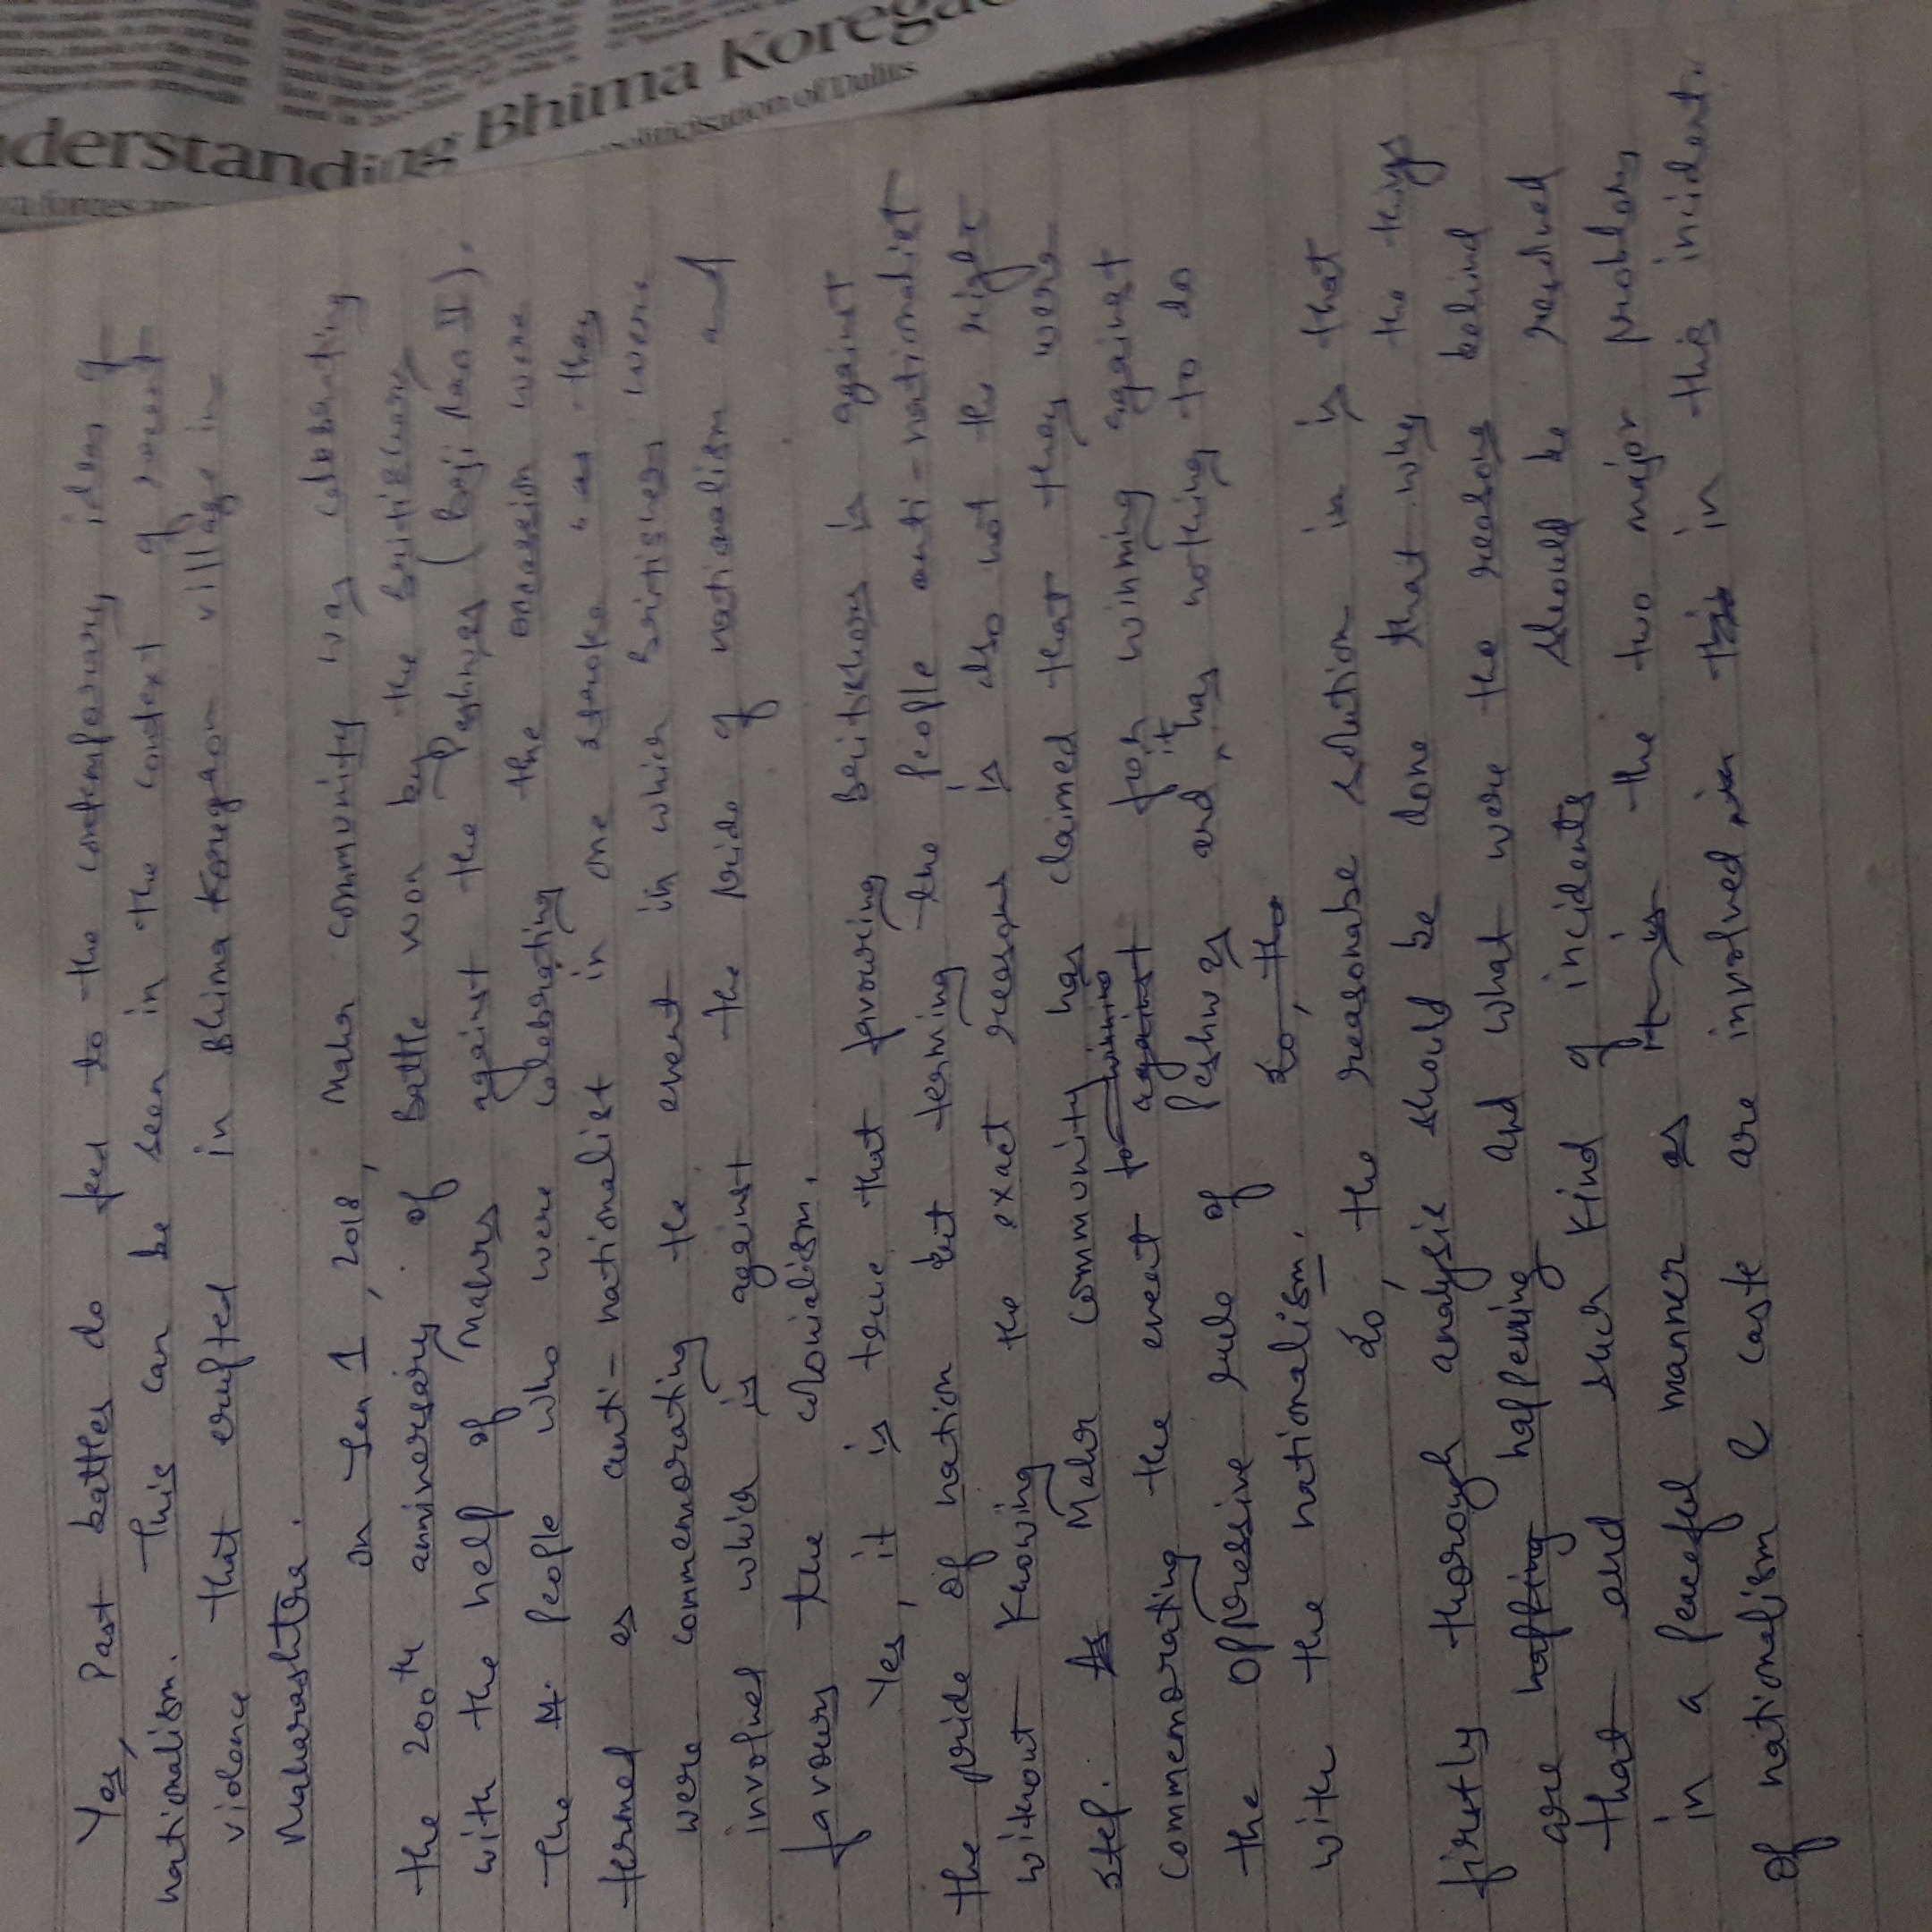 nderstanding Bhima Korega
oliticisation of Dalits
Yes, Past battles do feed to the contemporary ideas of
nationalism. This can be seen in the context of recent
violence that erupted in Bhima Koregaon village in
Maharashtra.
on Jan 1, 2018, Mahar community was celebrating
the 200th anniversary of Battle won by the Britishers
with the help of Mahars against the Peshwas (Baji Rao II).
The M. People who were celebrating the occassion were
termed as anti-nationalist in one stroke as they
were commemorating the event in which Britishers were
involved which is against the pride of nationalism and
favours the colonialism.
Yes, it is true that favouring Britishers is against
the pride of nation but terming the people anti-nationalist
without knowing the exact reasons is also not the right
step. As Mahar community has claimed that they were
commemorating the event to winning against for winning against
the oppressive rule of Peshwas and it has nothing to do
with the nationalism. So, the
So, the reasonabe solution in is that
firstly thorough analysis should be done that why the things
are happing happening and what were the reasons behind
that and such kind of incidents should be resolved
in a peaceful manner as it is the two major problems
of nationalism & caste are involved in this in this incident.